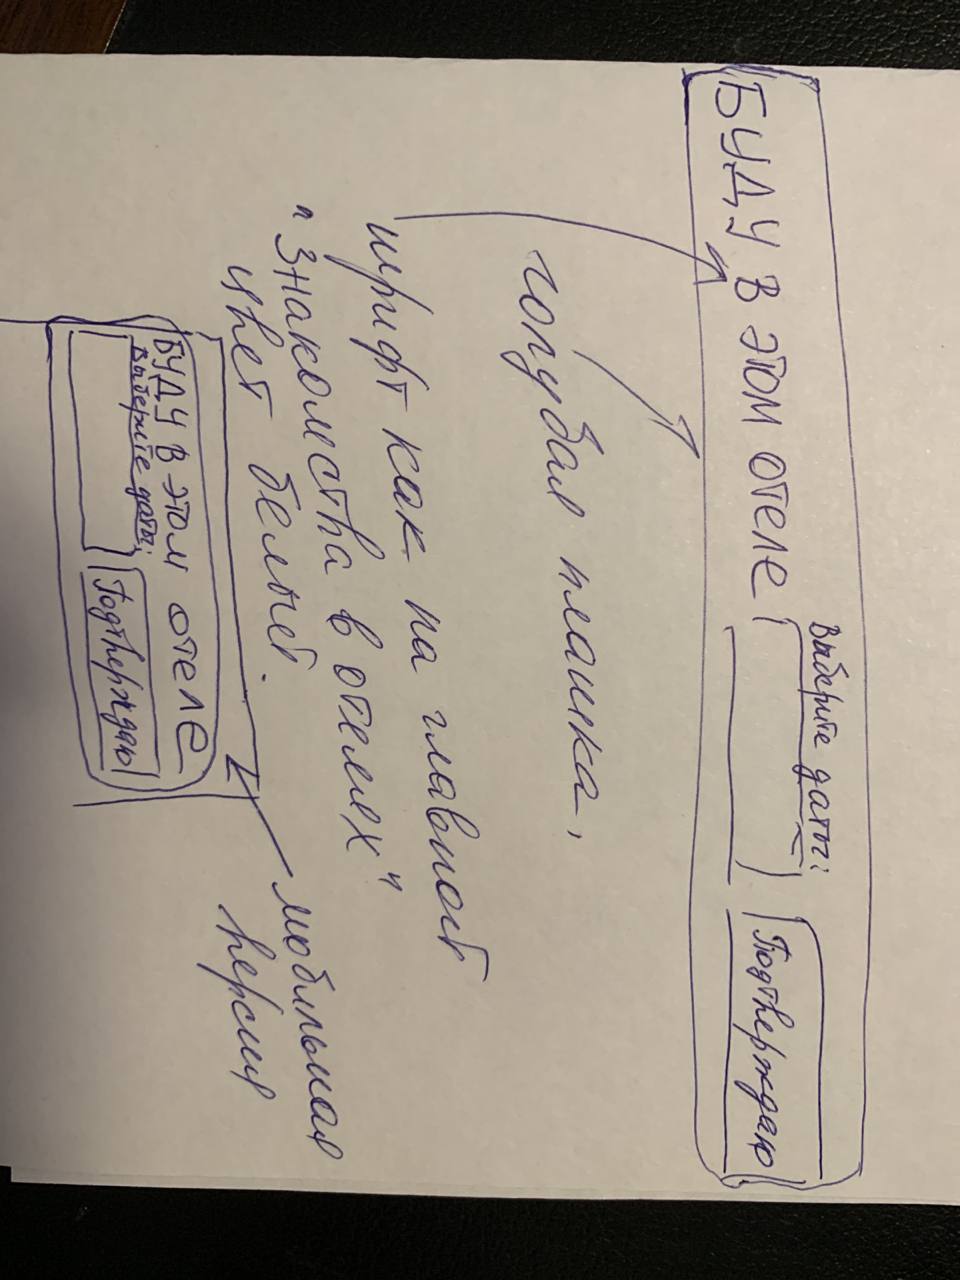 Выберите даты:
БУДУ В ЭТОМ ОТЕЛЕ
Подтверждаю
голубая плашка,
шрифт как на главной
"Знакомства в отелях"
цвет белый.
мобильная
версия
БУДУ В ЭТОМ ОТЕЛЕ
Выберите даты:
Подтверждаю